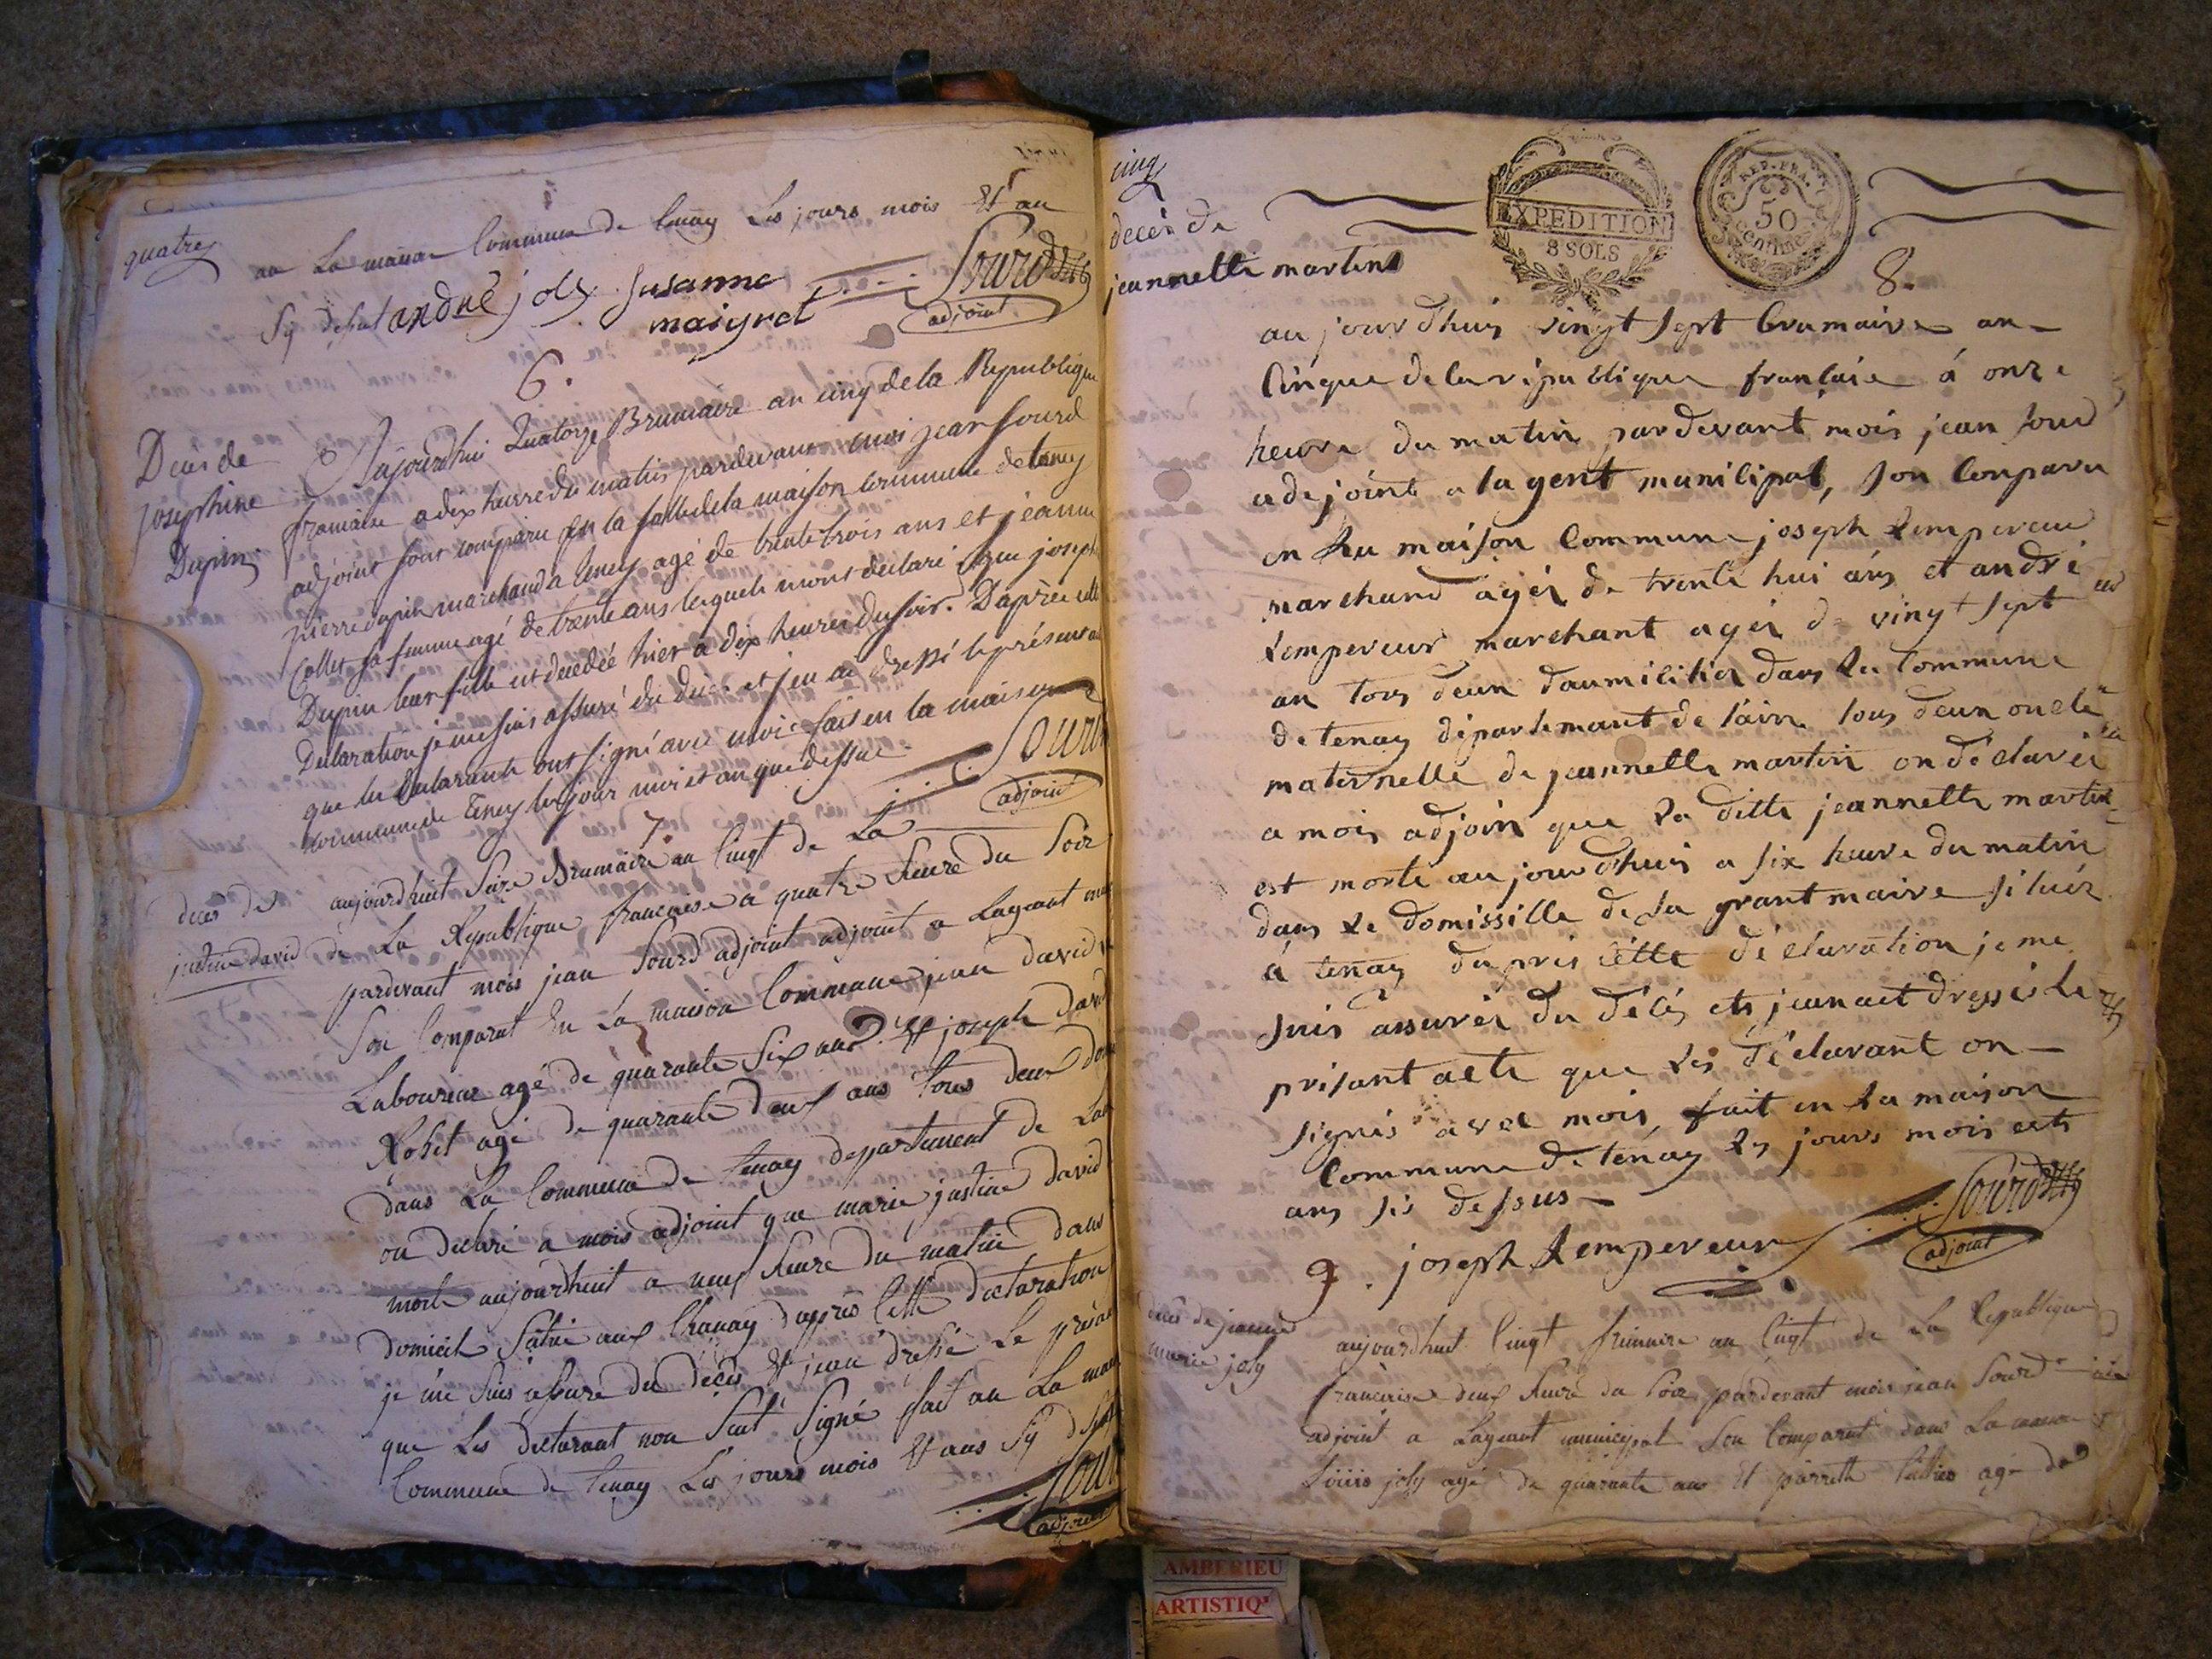 quatre
au La maison Commune de tenay Les jours mois Et an
Sy desut andré joly Susanne Sourd
maigret adjoint
6.
Décès de
josephine
Dupin
Aujourdhui Quatorze Brumaire an cinq de la Republique
francaise a dix heure du matin pardevant moi jean Sourd
adjoint sont comparu en la salle de la maison commune de teney
pierre dupin marchand a teney agé de trente trois ans et jeanne
Collet sa femme agé de trente ans lesquels mont declaré que joseph
Dupin leur fille est decedée hier à dix heures du soir. D'après cette
Declaration je me suis assuré du décè et j'en ai dressé le présent
que les Declarants ont signé avec moi fait en la maison
commune de teney les jour mois et an que dessus Sourd
adjoint
7.
décès de
justine david
aujourdhuit Seize Brumaire an Cinqt de La
de La Republique francaise a quatre heure du Soir
pardevant mois jean Sourd adjoint adjoint a Lageant
Son Comparut En La maison Commune jean david
Laboureur agé de quarante Six ans Et joseph david
Robet agé de quarante deux ans tous deux
dans La Commune de tenay departement de
on declaré a mois adjoint que marie justine david
morte aujourdhuit a neuf heure du matin dans
domicile Situé aux Chanay dapres Cette declaration
je me Suis assuré du déces Et jean dressé Le
que Les declarant non Seut Signé fait au La
Commune de tenay Les jours mois Et ans Sy
Sourd
adjoint
cinq
décès de
jeannette martin
EXPEDITION
8 SOLS
REP. FRA.
50
centimes
8.
au jour dhuis vingt sept brumaire an
Cinque de la république francaise á onze
heure du matin pardevant mois jean sourd
adejoint a lagent municipal, son Conparu
en La maison Commune joseph Lempereur
marchand agéz de trente hui ans et andré
Lempereur marchant agéz de vingt sept
an tous deux daumicilié dans La Commune
de tenay départemant de l'ain tous deux oncle
maternelle de jeannette martin on déclaréz
a mois adjoin que La ditte jeannette martin
est morte au jour dhuis a six heure du matin
dans Le domissille de sa grant maire situéz
á tenay dapres cette déclaration je me
suis assuréz du décés et jeanaet dressés Le
présant acte que Les déclarant on
signés avec mois, fait en La maison
Commune de ténay Les jours mois et
ans sis dessus
joseph Lempereur Sourd
adjoint
9.
décès de jeanne
marie joly
aujourdhuit Cinqt frimaire an Cinqt de La Republique
francaise deux heure du Soir pardevant mois jean Sourd
adjoint a Lageant municipal Son Comparut dans La maison
Loüis joly agé de quarante ans Et agé de
AMBERIEU
ARTISTIQ'